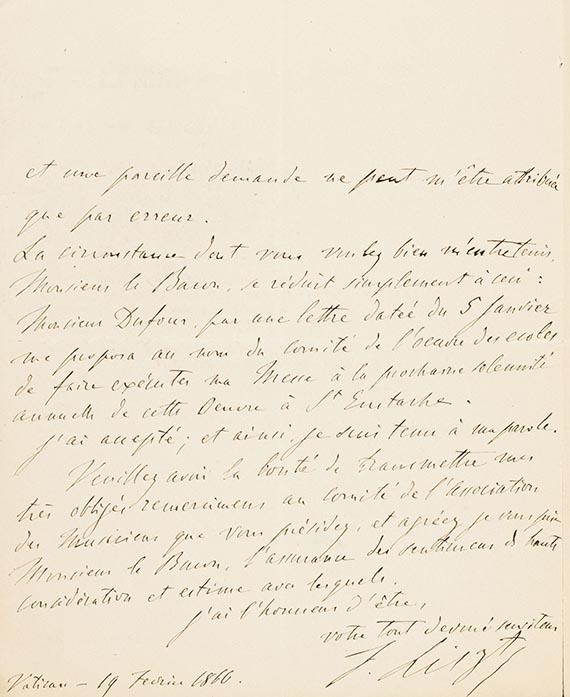 et une pareille demande ne peut m'être attribuée
que par erreur.
La circonstance dont vous voulez bien m'entretenir,
Monsieur le Baron, se réduit simplement à ceci :
Monsieur Dufour, par une lettre datée du 5 Janvier
me proposa au nom du comité de l'oeuvre des ecoles
de faire exécuter ma Messe à la prochaine solennité
annuelle de cette Oeuvre à St Eustache.
J'ai accepté; et ainsi je suis tenu à ma parole.
Veuillez avoir la bonté de transmettre mes
très obligés remercimens au comité de l'Association
des Musiciens que vous présidez, et agréez je vous prie
Monsieur le Baron, l'assurance des sentimens de haute
considération et estime avec lesquels
j'ai l'honneur d'être,
votre tout dévoué serviteur
F. Liszt
Vatican – 19 Fevrier 1866.